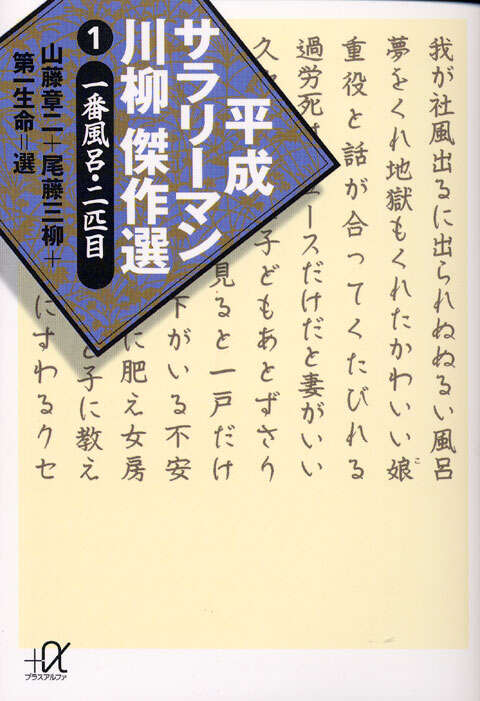 平成
サラリーマン
川柳 傑作選
1 一番風呂・二匹目
山藤章二＋尾藤三柳＋
第一生命＝選
我が社風出るに出られぬぬるい風呂
夢をくれ地獄もくれたかわいい娘
こ
重役と話が合ってくたびれる
過労死は
ースだけだと妻がいい
久
子どもあとずさり
見ると一戸だけ
下がいる不安
に肥え女房
と子に教え
にすわるクセ
+α
プラスアルファ